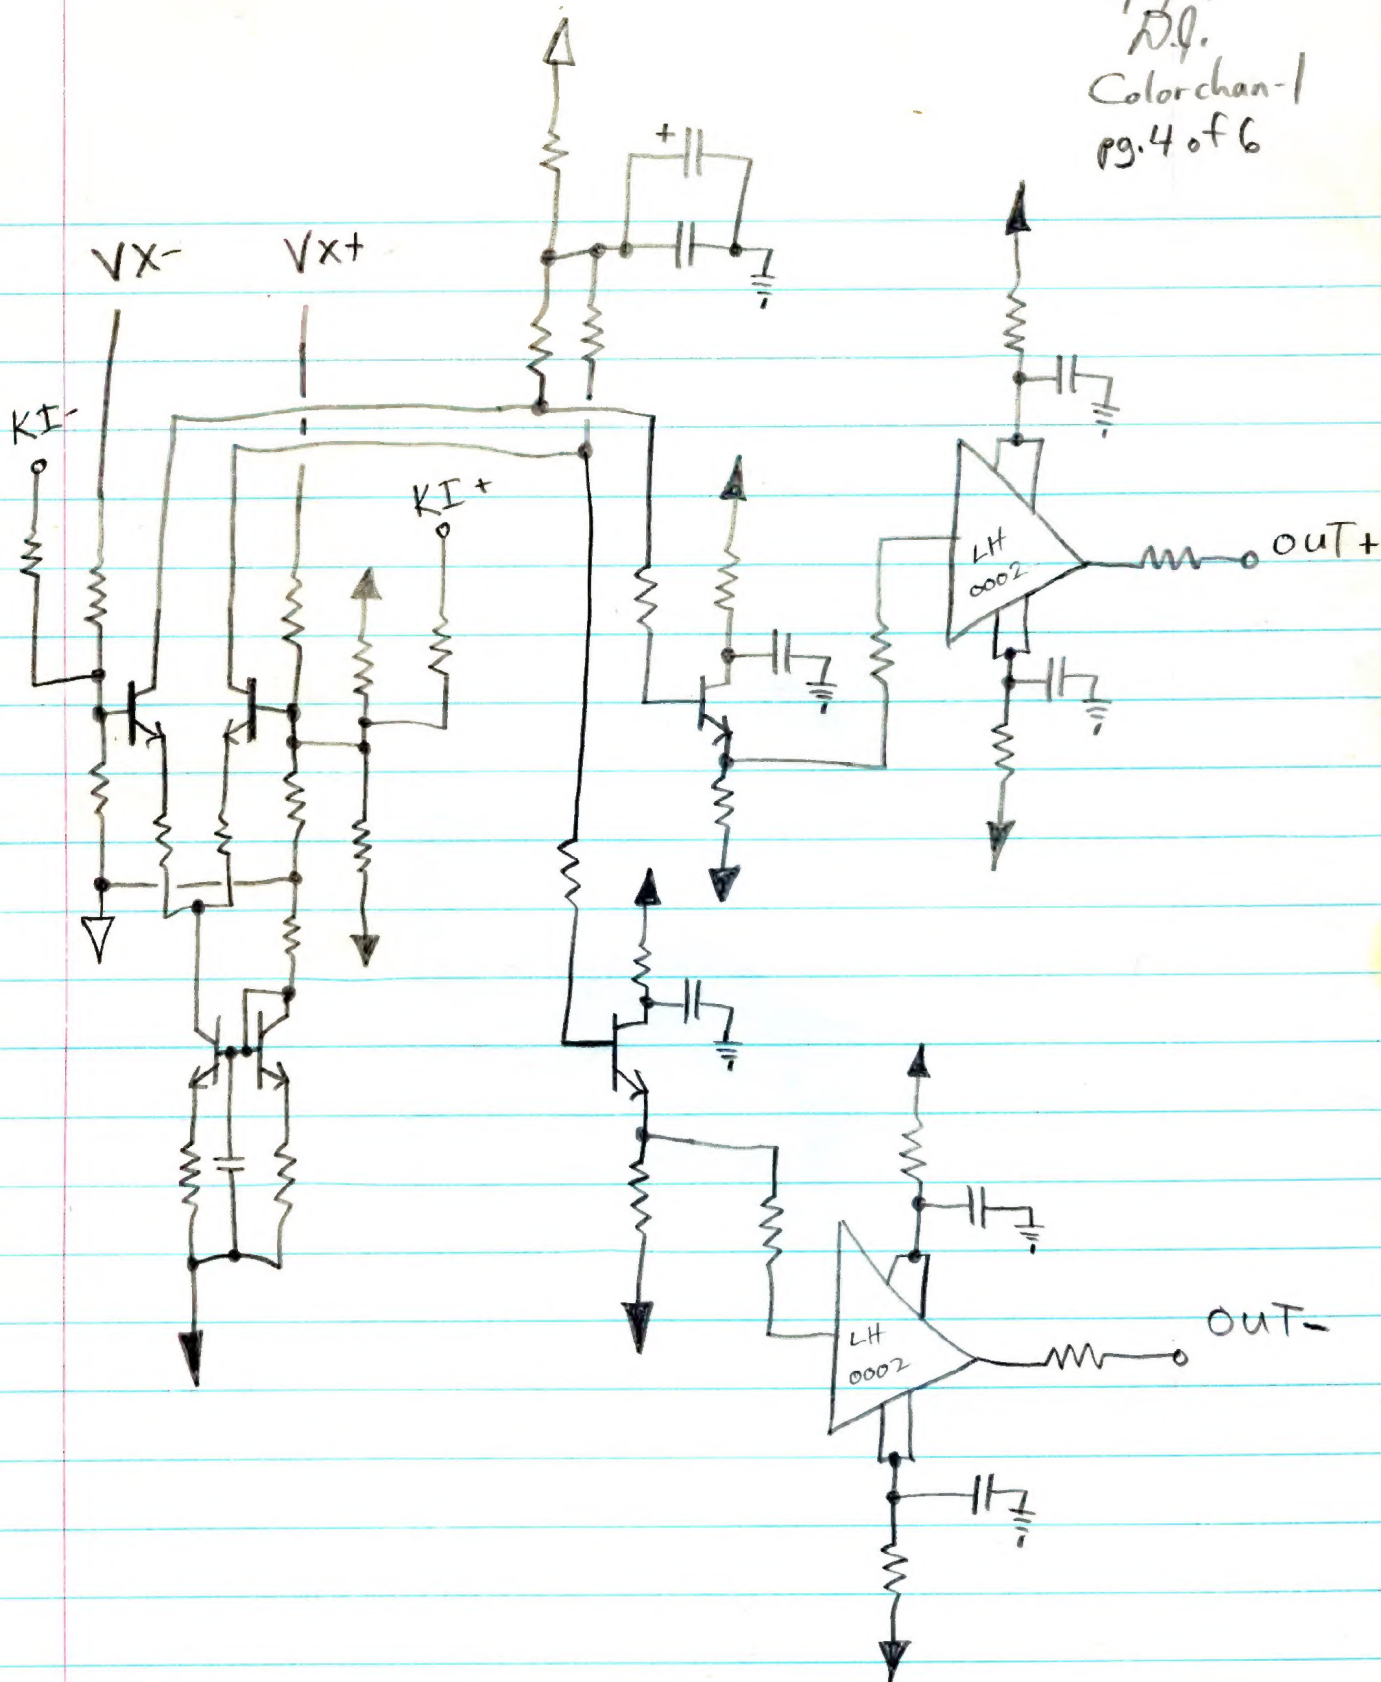 D.J.
Colorchan-1
pg. 4 of 6
VX-
VX+
KI-
KI+
+
LH
0002
OUT+
LH
0002
OUT-